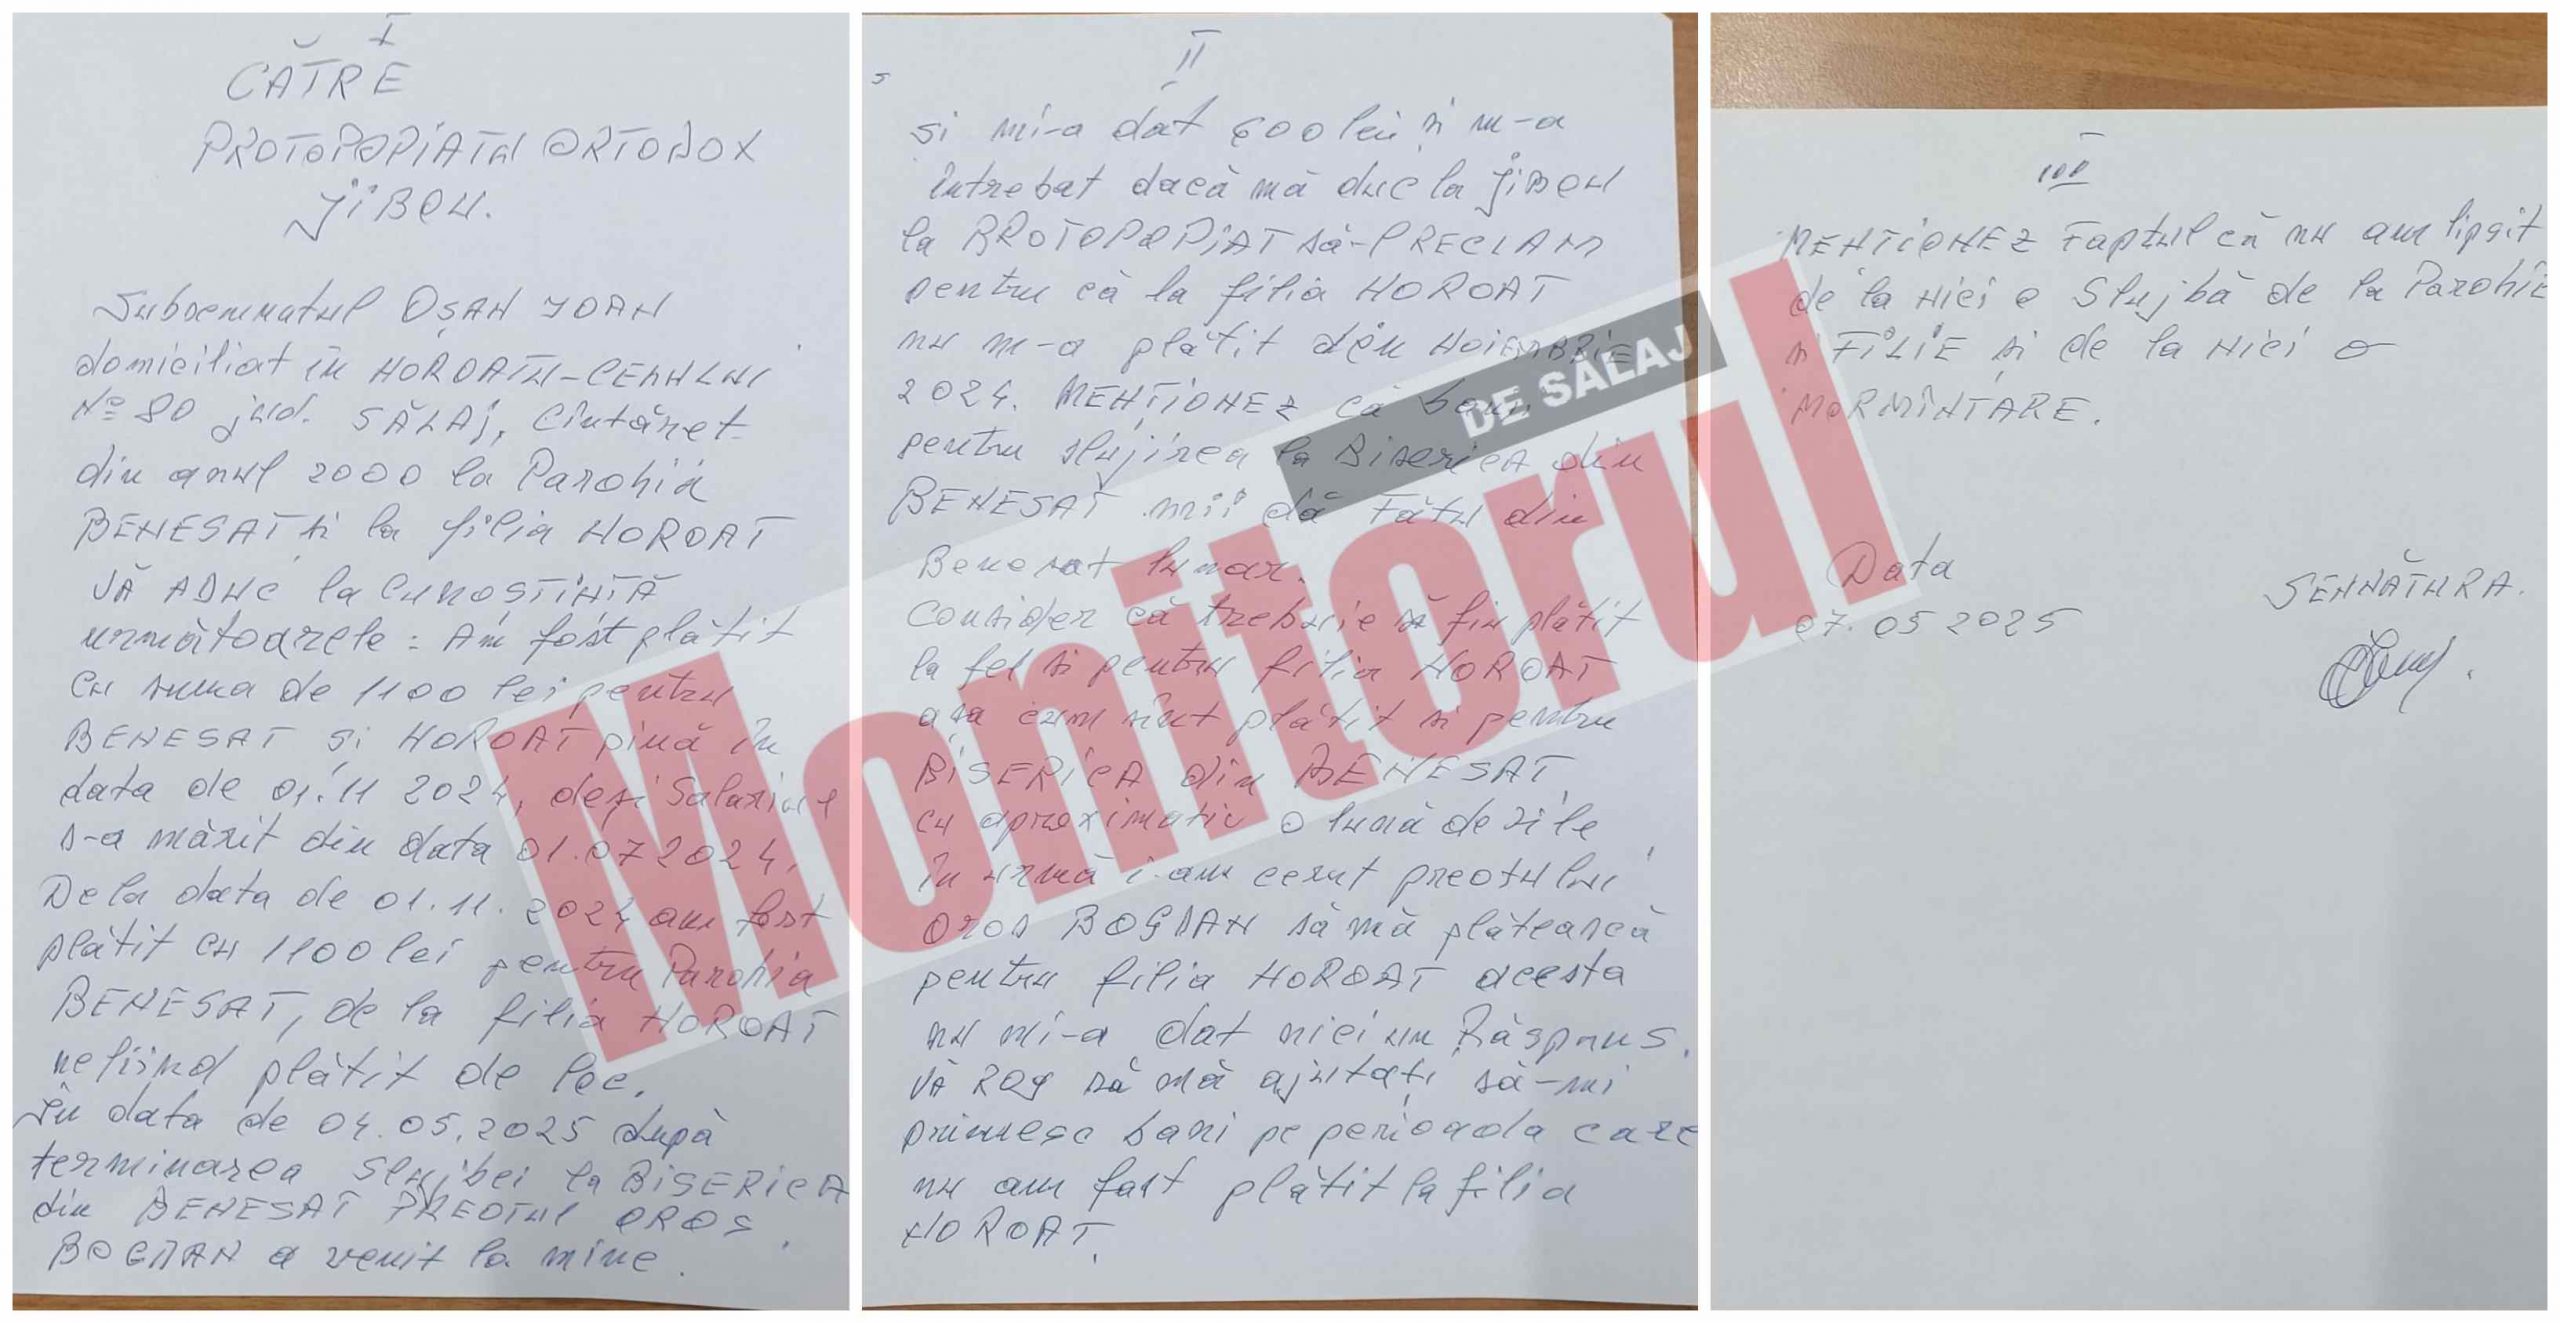 I
CĂTRE
PROTOPOPIATUL ORTODOX
JIBOU.
Subsemnatul OȘAN IOAN
domiciliat în HOROATU-CEHULUI
Nº 80 jud. SĂLAJ, Cîntăreț
din anul 2000 la Parohia
BENESAT și la filia HOROAT
VĂ ADUC la CUNOSTINTĂ
următoarele: Am fost plătit
cu suma de 1100 lei pentru
BENESAT și HOROAT pînă în
data de 01.11 2024, deși Salariul
s-a mărit din data 01.07 2024.
De la data de 01.11.2024 am fost
plătit cu 1100 lei pentru Parohia
BENESAT, de la filia HOROAT
nefiind plătit de loc.
În data de 04.05.2025 după
terminarea Slujbei la BISERICA
din BENESAT PREOTUL OROS
BOGDAN a venit la mine.
II
și mi-a dat 600 lei si m-a
întrebat dacă mă duc la JIBOU
la PROTOPOPIAT să-l RECLAM
pentru că la filia HOROAT
nu m-a plătit din NOIEMBRIE
2024. MENȚIONEZ că bani
pentru slujirea la Biserica din
BENESAT mii dă Fătu din
Benesat lunar.
Consider că trebuie să fiu plătit
la fel si pentru filia HOROAT
așa cum sînt plătit si pentru
BISERICA din BENESAT,
cu aproximativ o lună de zile
în urmă i-am cerut preotului
Oros BOGDAN să mă plătească
pentru filia HOROAT acesta
nu mi-a dat nici un Răspuns.
VĂ ROG să mă ajutați să-mi
primesc bani pe perioada care
nu am fost plătit la filia
HOROAT.
III
MENTIONEZ Faptul că nu am lipsit
de la nici o Slujbă de la Parohie
si FILIE si de la nici o
MORMÎNTARE.
Data
07.05 2025
SEMNĂTURA.
Monitorul
DE SĂLAJ